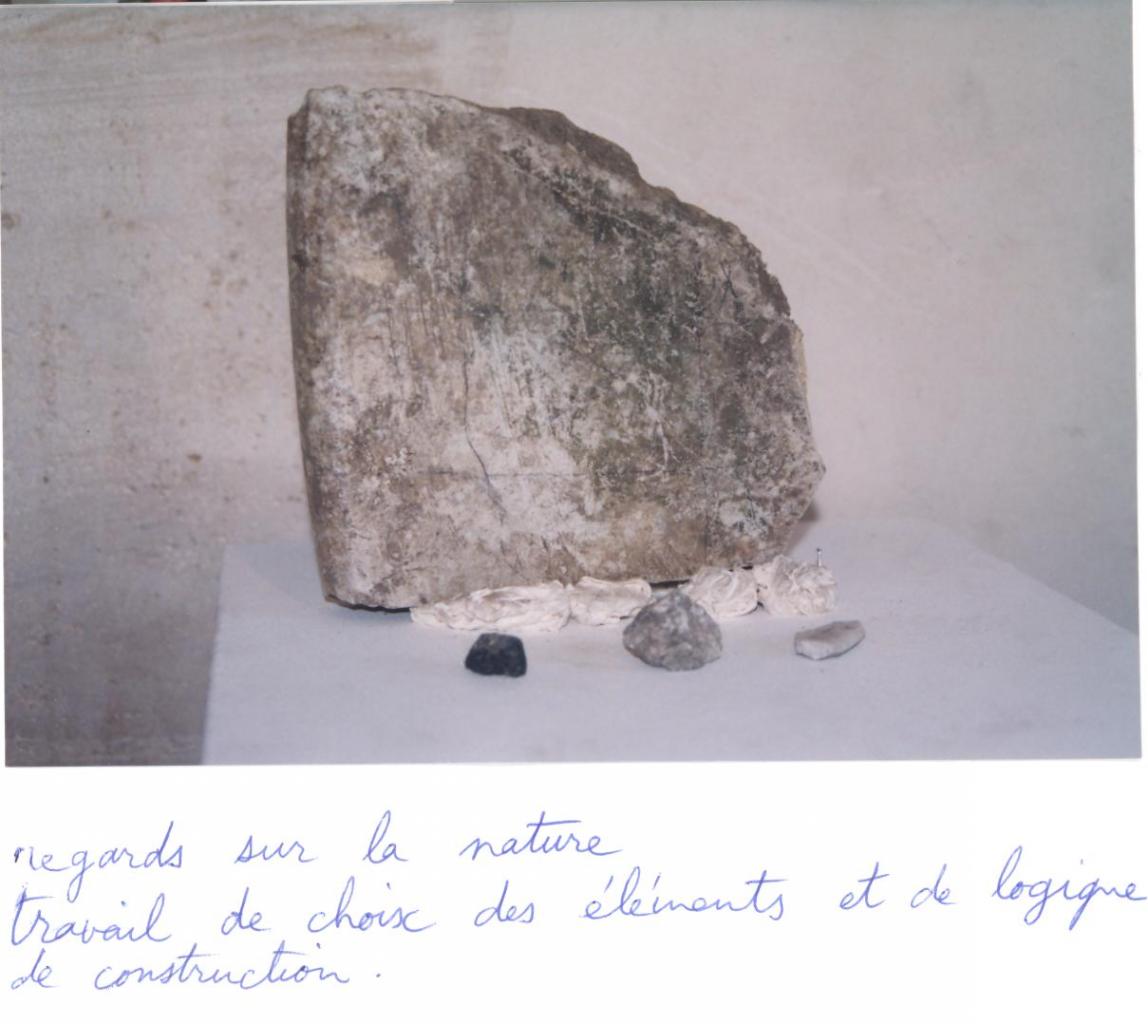 regards sur la nature
travail de choix des éléments et de logique
de construction.